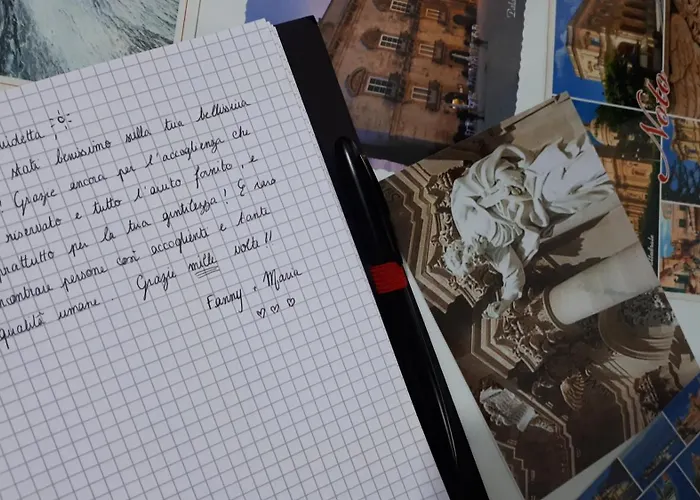 uidetta
stata benissimo sulla tua bellissima
! Grazie ancora per l'accoglienza che
riservato e tutto l'aiuto fornito, e
prattutto per la tua gentilezza! È raro
ncontrare persone così accoglienti e tante
qualità umane. Grazie mille volte!!
Fanny + Maria
Noto